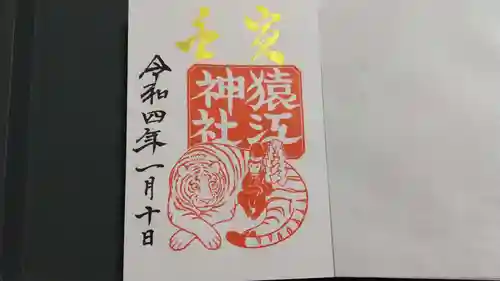 壬寅
猿江
神社
令和四年一月十日